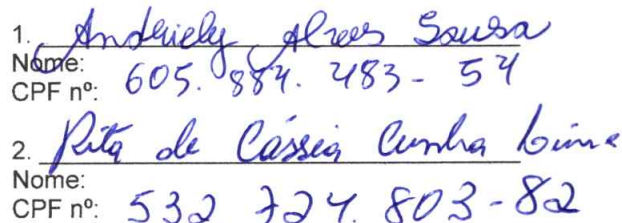 1. Andriely Alves Sousa
Nome:
CPF nº: 605.884.483-54
2. Rita de Cássia Cunha Lima
Nome:
CPF nº: 532 724.803-82